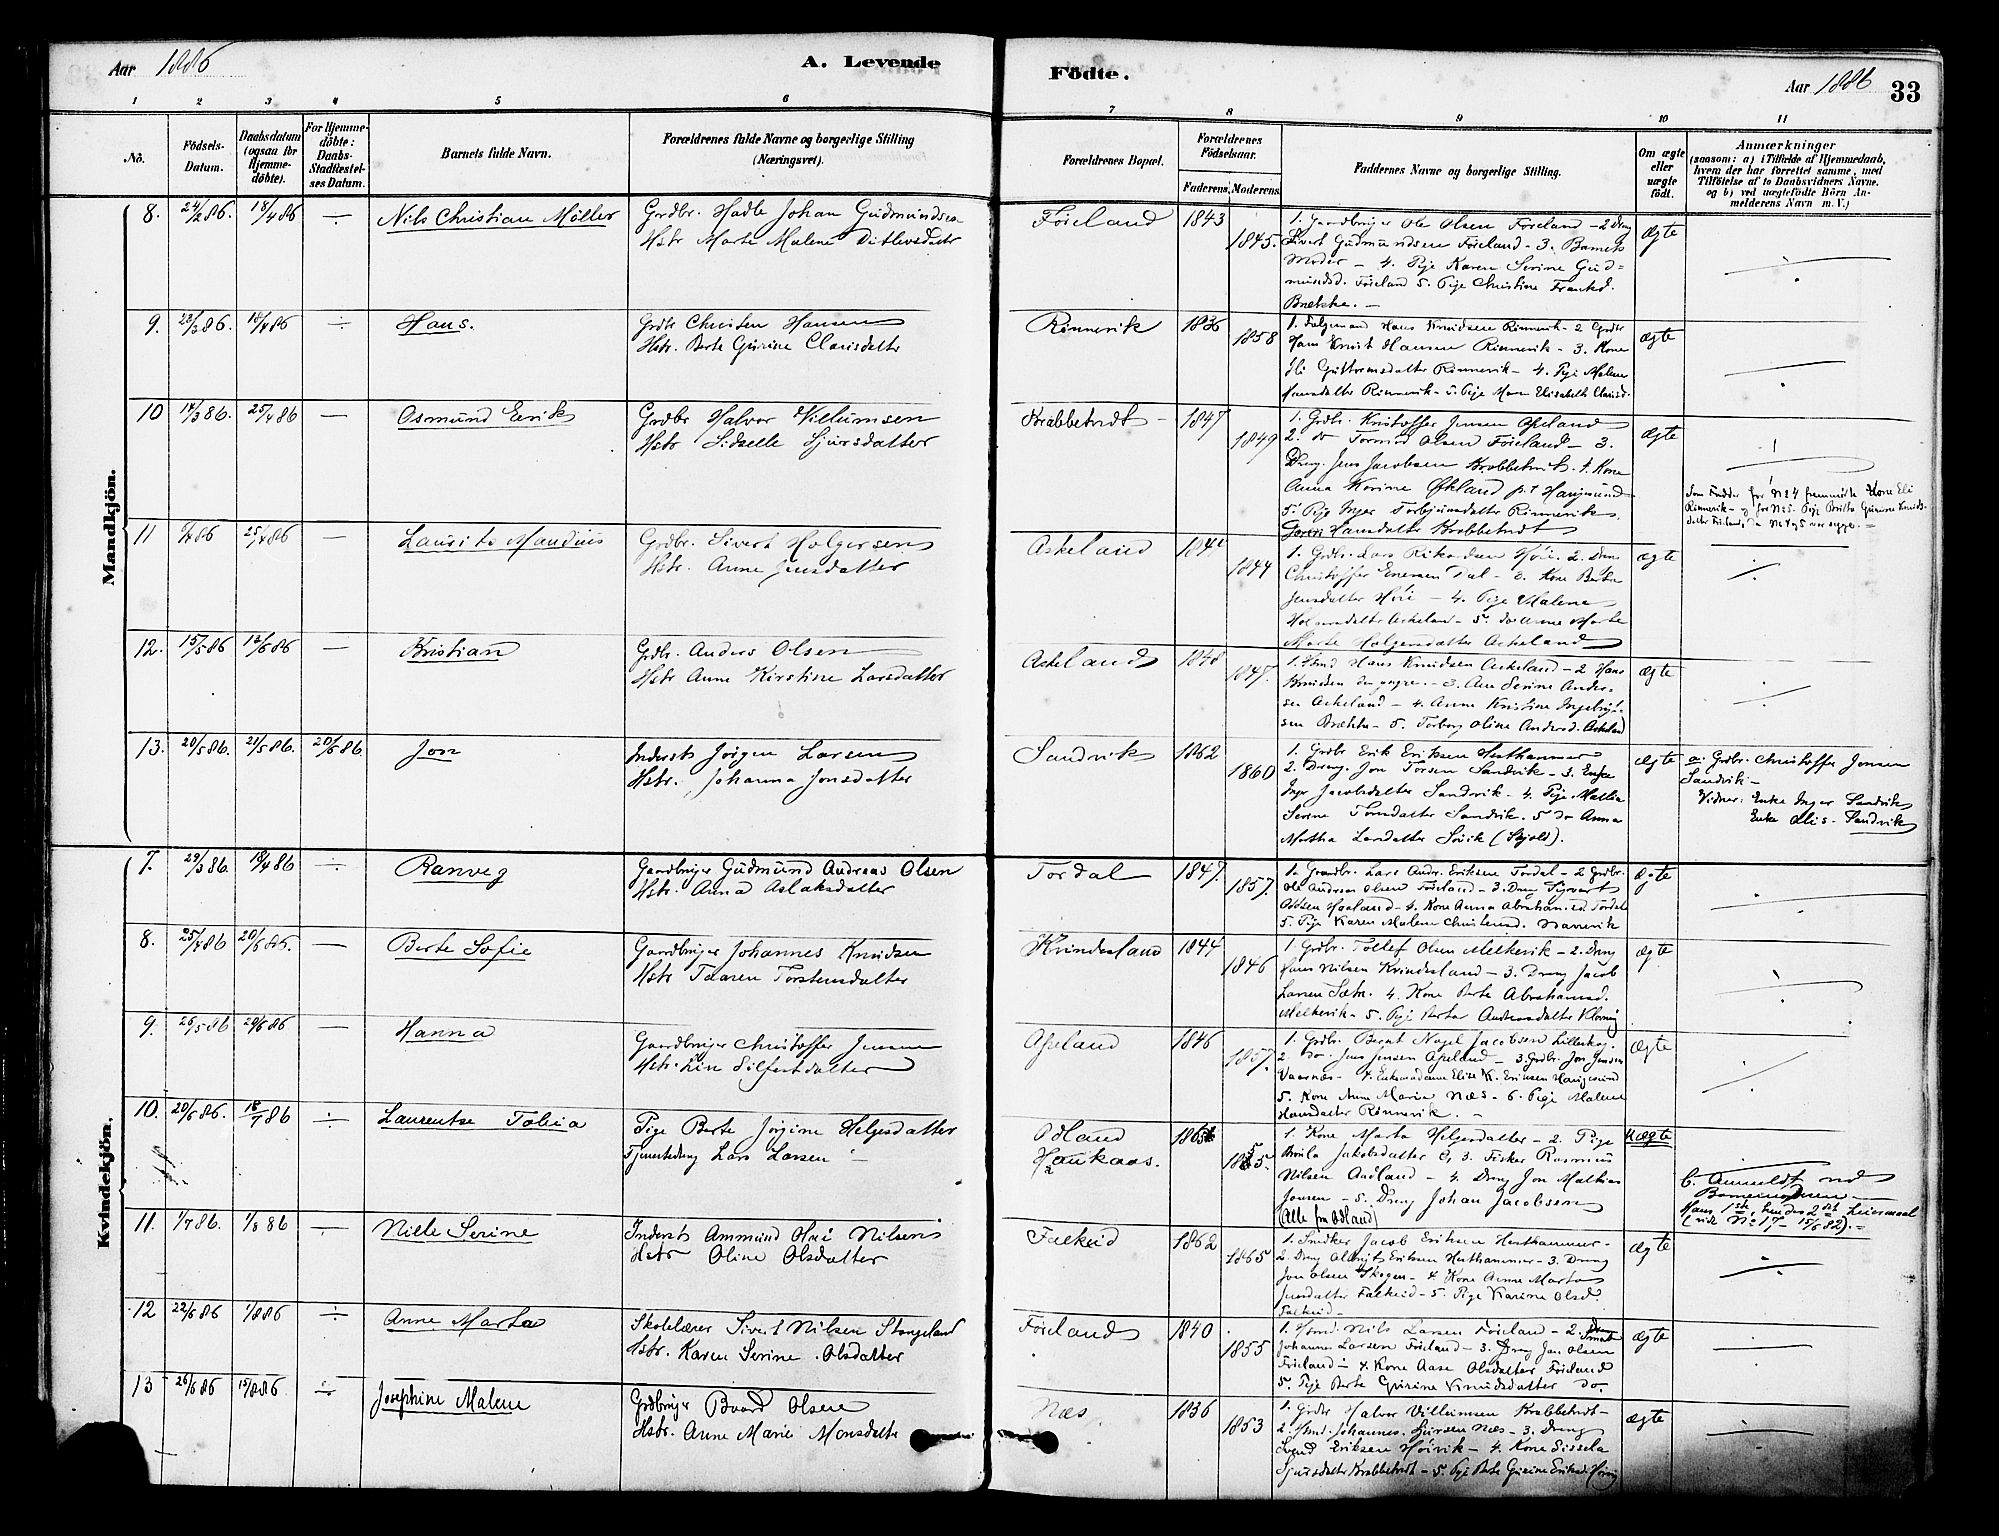 Aar 1886
A. Levende
Födte.
Aar 1886
33
1 2 3 4 5 6 7 8 9 10 11
No.
Födsels-Datum.
Daabsdatum (ogsaa for Hjemme-döbte).
For Hjemme-döbte: Daabs-Stadfæstel-ses Datum.
Barnets fulde Navn.
Forældrenes fulde Navne og borgerlige Stilling (Næringsvei).
Forældrenes Bopæl.
Forældrenes Födselsaar.
Faderens. Moderens.
Faddernes Navne og borgerlige Stilling.
Om ægte eller uægte födt.
Anmærkninger
(saasom: a) i Tilfælde af Hjemmedaab,
hvem der har forrettet samme, med
Tilföielse af to Daabsvidners Navne,
og b) ved uægtefödte Börn An-
melderens Navn m. V.)
Mandkjön.
8. 24/2 86. 18/4 86 Nils Christian Møller
Grdbr. Hadle Johan Gudmundsen
Hstr Marte Malene Ditlevsdatter
Føreland 1843 1845.
1. Gaardbruger Ole Olsen Føreland - 2 Dreng
Sivert Gudmundsen Føreland - 3. Barnets
Moder - 4. Pige Karen Serine Gud=
mundsd. Føreland 5. Pige Christine
Brekke. -
Ægte
9. 23/2 86. 18/4 86 Hans.
Grdbr Christen Hansen
Hstr. Berte Gurine Clausdatter
Rønnevik 1836 1858
1. Hans Knudsen Rønnevik - 2 Grdbr
Hans Knut Hansen Rønnevik - 3. Kone
Guttormsdatter Rønnevik - 4. Pige Malene
Hansdatter Rønnevik - 5. Pige Elisabeth Clausd.
ægte
10 14/3 86. 25/4 86 Osmund Eerik
Grdbr Halvor Villumsen
Hstr Sidselle Sjursdatter
Krabbetvedt 1847 1849
1. Grdbr. Kristoffer Jensen Apeland
2. do Tormod Olsen Føreland - 3.
Dreng. Jens Jacobsen Krabbetvedt. 4. Kone
Anna Korine Økland p.t Haugesund
5. Pige Inger Torbjørnsdatter Rønnevik.
Hansdatter Krabbetvedt
ægte
Som Fadder for No 4 fremmødte Kone Eli
Rønnevik - og for No 5. Pige Gurine Knuds-
datter Føreland, da No 4 og 5 var syge. =
11 25/4 86 Laurits Mandius
Grdbr. Sivert Holgersen
Hstr. Anne Jensdatter
Askeland 1844
1. Grdbr. Lars Rikardsen Høie. 2. Dreng
Christoffer Enersen Dal - 3. Kone Berta
Jensdatter Høie - 4. Pige Malena
Holgersdatter Askeland - 5. do Anne Marte
Marte Holgersdatter Askeland
ægte
12. 15/5 86 Kristian
Grdbr. Anders Olsen
Hstr Anne Kirstine Larsdatter
Askeland 1848 1847.
1. Hans Knudsen Askeland - 2 Hans
Knudsen den yngre. - 3. Ane Serine Ander-
sen Askeland - 4. Anne Kristine Ingebrigt-
sen Brekke - 5. Torborg Oline Andersd. Askeland
Ægte
13. 20/5 86. 21/5 86. 20/6 86 Jon
Inderst Jørgen Larsen
Hstr. Johanna Jonsdatter
Sandvik 1862 1860
1. Grdbr Erik Eriksen Hesthammer
2. Dreng. Jon Torsen Sandvik - 3. Enke
Inger Jacobsdatter Sandvik - 4. Pige Mathea
Serine Tormdatter Sandvik. 5 do Anna
Martha Larsdatter Søvik (Skjold).
ægte
a. Grdbr. Christoffer Jensen
Sandvik -
Vidner: Enke Inger Sandvik
Enke Sandvik
Kvindekjön.
7. 29/3 86. 18/4 86 Ranveg
Gaardbruger Gudmund Andreas Olsen
Hstr. Anna Aslaksdatter
Tordal 1847. 1857.
1. Gaardbr. Lars Andr. Eriksen Tordal - 2 Grdbr.
Ole Andreas Olsen Føreland - 3. Dreng Sigvart
Haaland - 4. Kone Anna Abrahamsd. Tordal
5. Pige Karen Malene
ægte
8. 25/4 86 20/6 86. Berte Sofie
Gaardbruger Johannes Knudsen
Hstr Taaren Torstensdatter
Kvindesland 1844 1846
1. Grdbr. Tollef Olsen Melkevik - 2. Dreng
Hans Nilsen Kvindesland - 3. Dreng Jacob
Larsen Sætre. 4. Kone Berte Abrahamsd.
Melkevik - 5. Pige Berta Andreasdatter
ægte
9. 26/5 86 20/6 86 Hanna
Gaardbruger Christoffer Jensen
Hstr. Lin Silfertsdatter
Apeland 1846 1857.
1. Grdbr. Bernt Nagel Jacobsen
2. do. Jens Jensen Apeland - 3. Grdbr. Jon Jensen
Vaarnæs - 4. Enkemadame Elise K. Eriksen Haugesund
5. Kone Anna Maria Næs - 6. Pige Malene
Hansdatter Rønnevik. -
ægte
10. 20/6 86. 18/7 86 Laurentse Tobia
Pige Berte Jørgine Helgesdatter
Tjenestedreng Lars Larsen -
Odland
Haukaas.
1. Kone Marta Helgesdatter - 2. Pige
Jakobsdatter 3. Fisker Rasmus
Nilsen Audland - 4. Dreng Jon Mathias
Jonsen - 5. Dreng Johan Jacobsen
(Alle fra Odland)
Uægte
b. Anmeldt ved
Hans 1ste, hendes 2det Leiermaal
(vide No 17 15/6 82). =
11. 1/7 86. 1/8 86 Nille Serine
Inderst Ammund Nilsen
Hstr Oline Olsdatter
Falkeid 1862 1865
1. Snedker Jacob Eriksen Hesthammer -
2. Dreng Eriksen Hesthammer - 3. Dreng
Jon Olsen Skogen - 4. Kone Anne Marta
Jensdatter Falkeid - 5. Pige Karine Olsd.
Falkeid -
ægte
12 22/6 86 1/8 86 Anne Marta
Skolelærer Sivert Nilsen Stangeland
Hstr. Karen Serine Olsdatter
Føreland 1840 1855
1. Nils Larsen Føreland - 2.
Johannes Larsen Føreland - 3. Dreng Jon Olsen
Føreland - 4. Kone Aase Olsdatter Føreland
5. Pige Berte Gurine Knudsdatter do.
ægte
13 26/6 86 15/8 86. Josephine Malene
Grdbruger Baard Olsen
Hstr. Anne Marie Monsdatter
Næs 1836 1853
1. Grdbr Halvor Villumsen Krabbetvedt -
2. Johannes Sjursen Næs - 3. Dreng
Svend Eriksen Høivik - 4. Kone Sissela
Sjursdatter Krabbetvedt - 5. Pige Berte Gurine Eriksd.
ægte